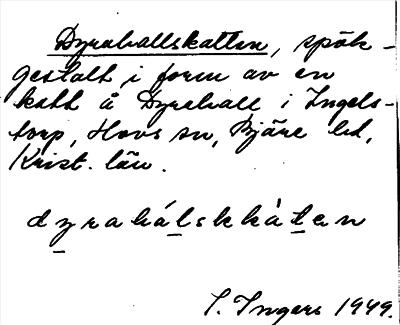 Dyrahallskatten, spök-
gestalt i form av en
katt å Dyrahall i Ingels-
torp, Hovs sn, Bjäre hd,
Krist. län.
dyrahálskkàtən
I. Ingers 1949.